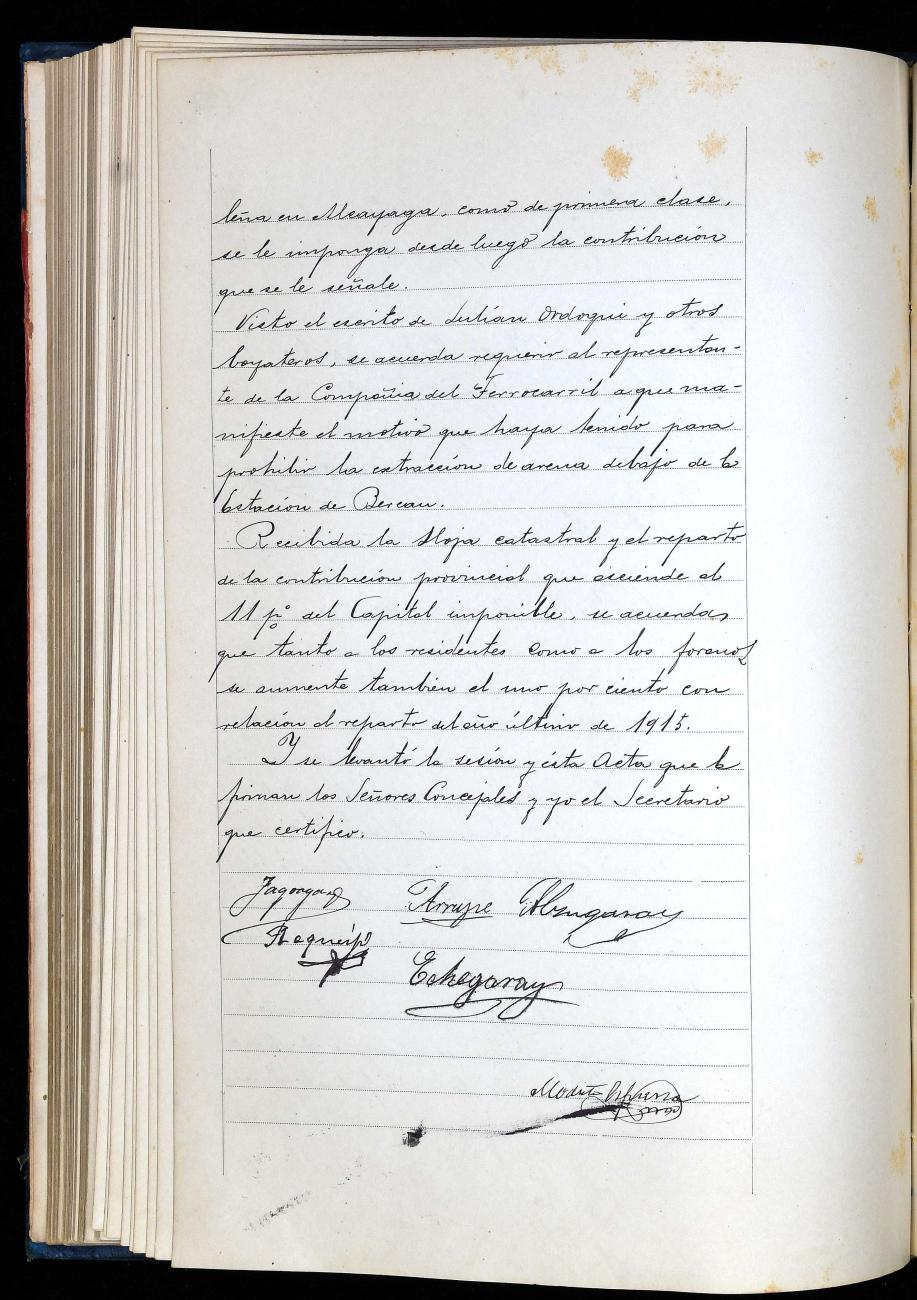 leña en Alcayaga, como de primera clase,
se le imponga desde luego la contribución
que se le señale.
Visto el escrito de Julián Ordoqui y otros
boyateros, se acuerda requerir al representan-
te de la Compañia del Ferrocarril a que ma-
nifieste el motivo que haya tenido para
prohibir la extracción de arena debajo de la
Estación de Bereau.
Recibida la Hoja catastral y el reparto
de la contribución provincial que asciende al
11 p% del Capital imponible, se acuerda,
que tanto a los residentes como a los foranos
se aumente también el uno por ciento con
relación al reparto del año último de 1915.
Y se levantó la sesión y ésta Acta que la
firman los Señores Concejales y yo el Secretario
que certifico.
Arrupe
Echegaray